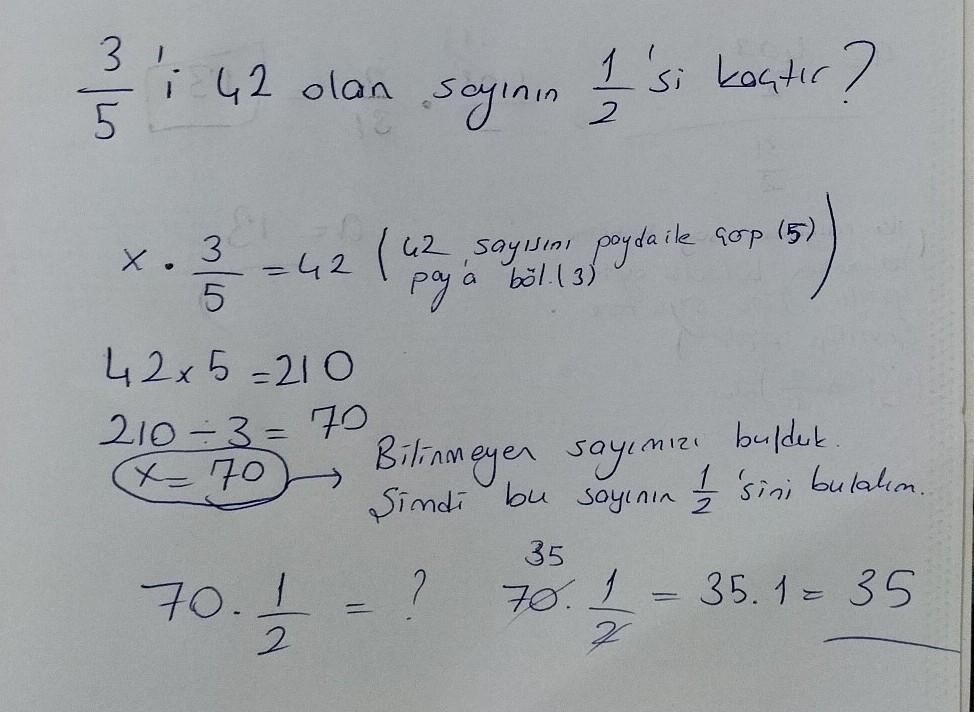 3/5'i 42 olan sayının 1/2'si kaçtır?
x . 3/5 = 42 (42 sayısını payda ile çarp (5)
pay'a böl. (3))
42 x 5 = 210
210 ÷ 3 = 70
x = 70 → Bilinmeyen sayımızı bulduk.
Şimdi bu sayının 1/2'sini bulalım.
70 . 1/2 = ? 35 70 . 1/2 = 35 . 1 = 35